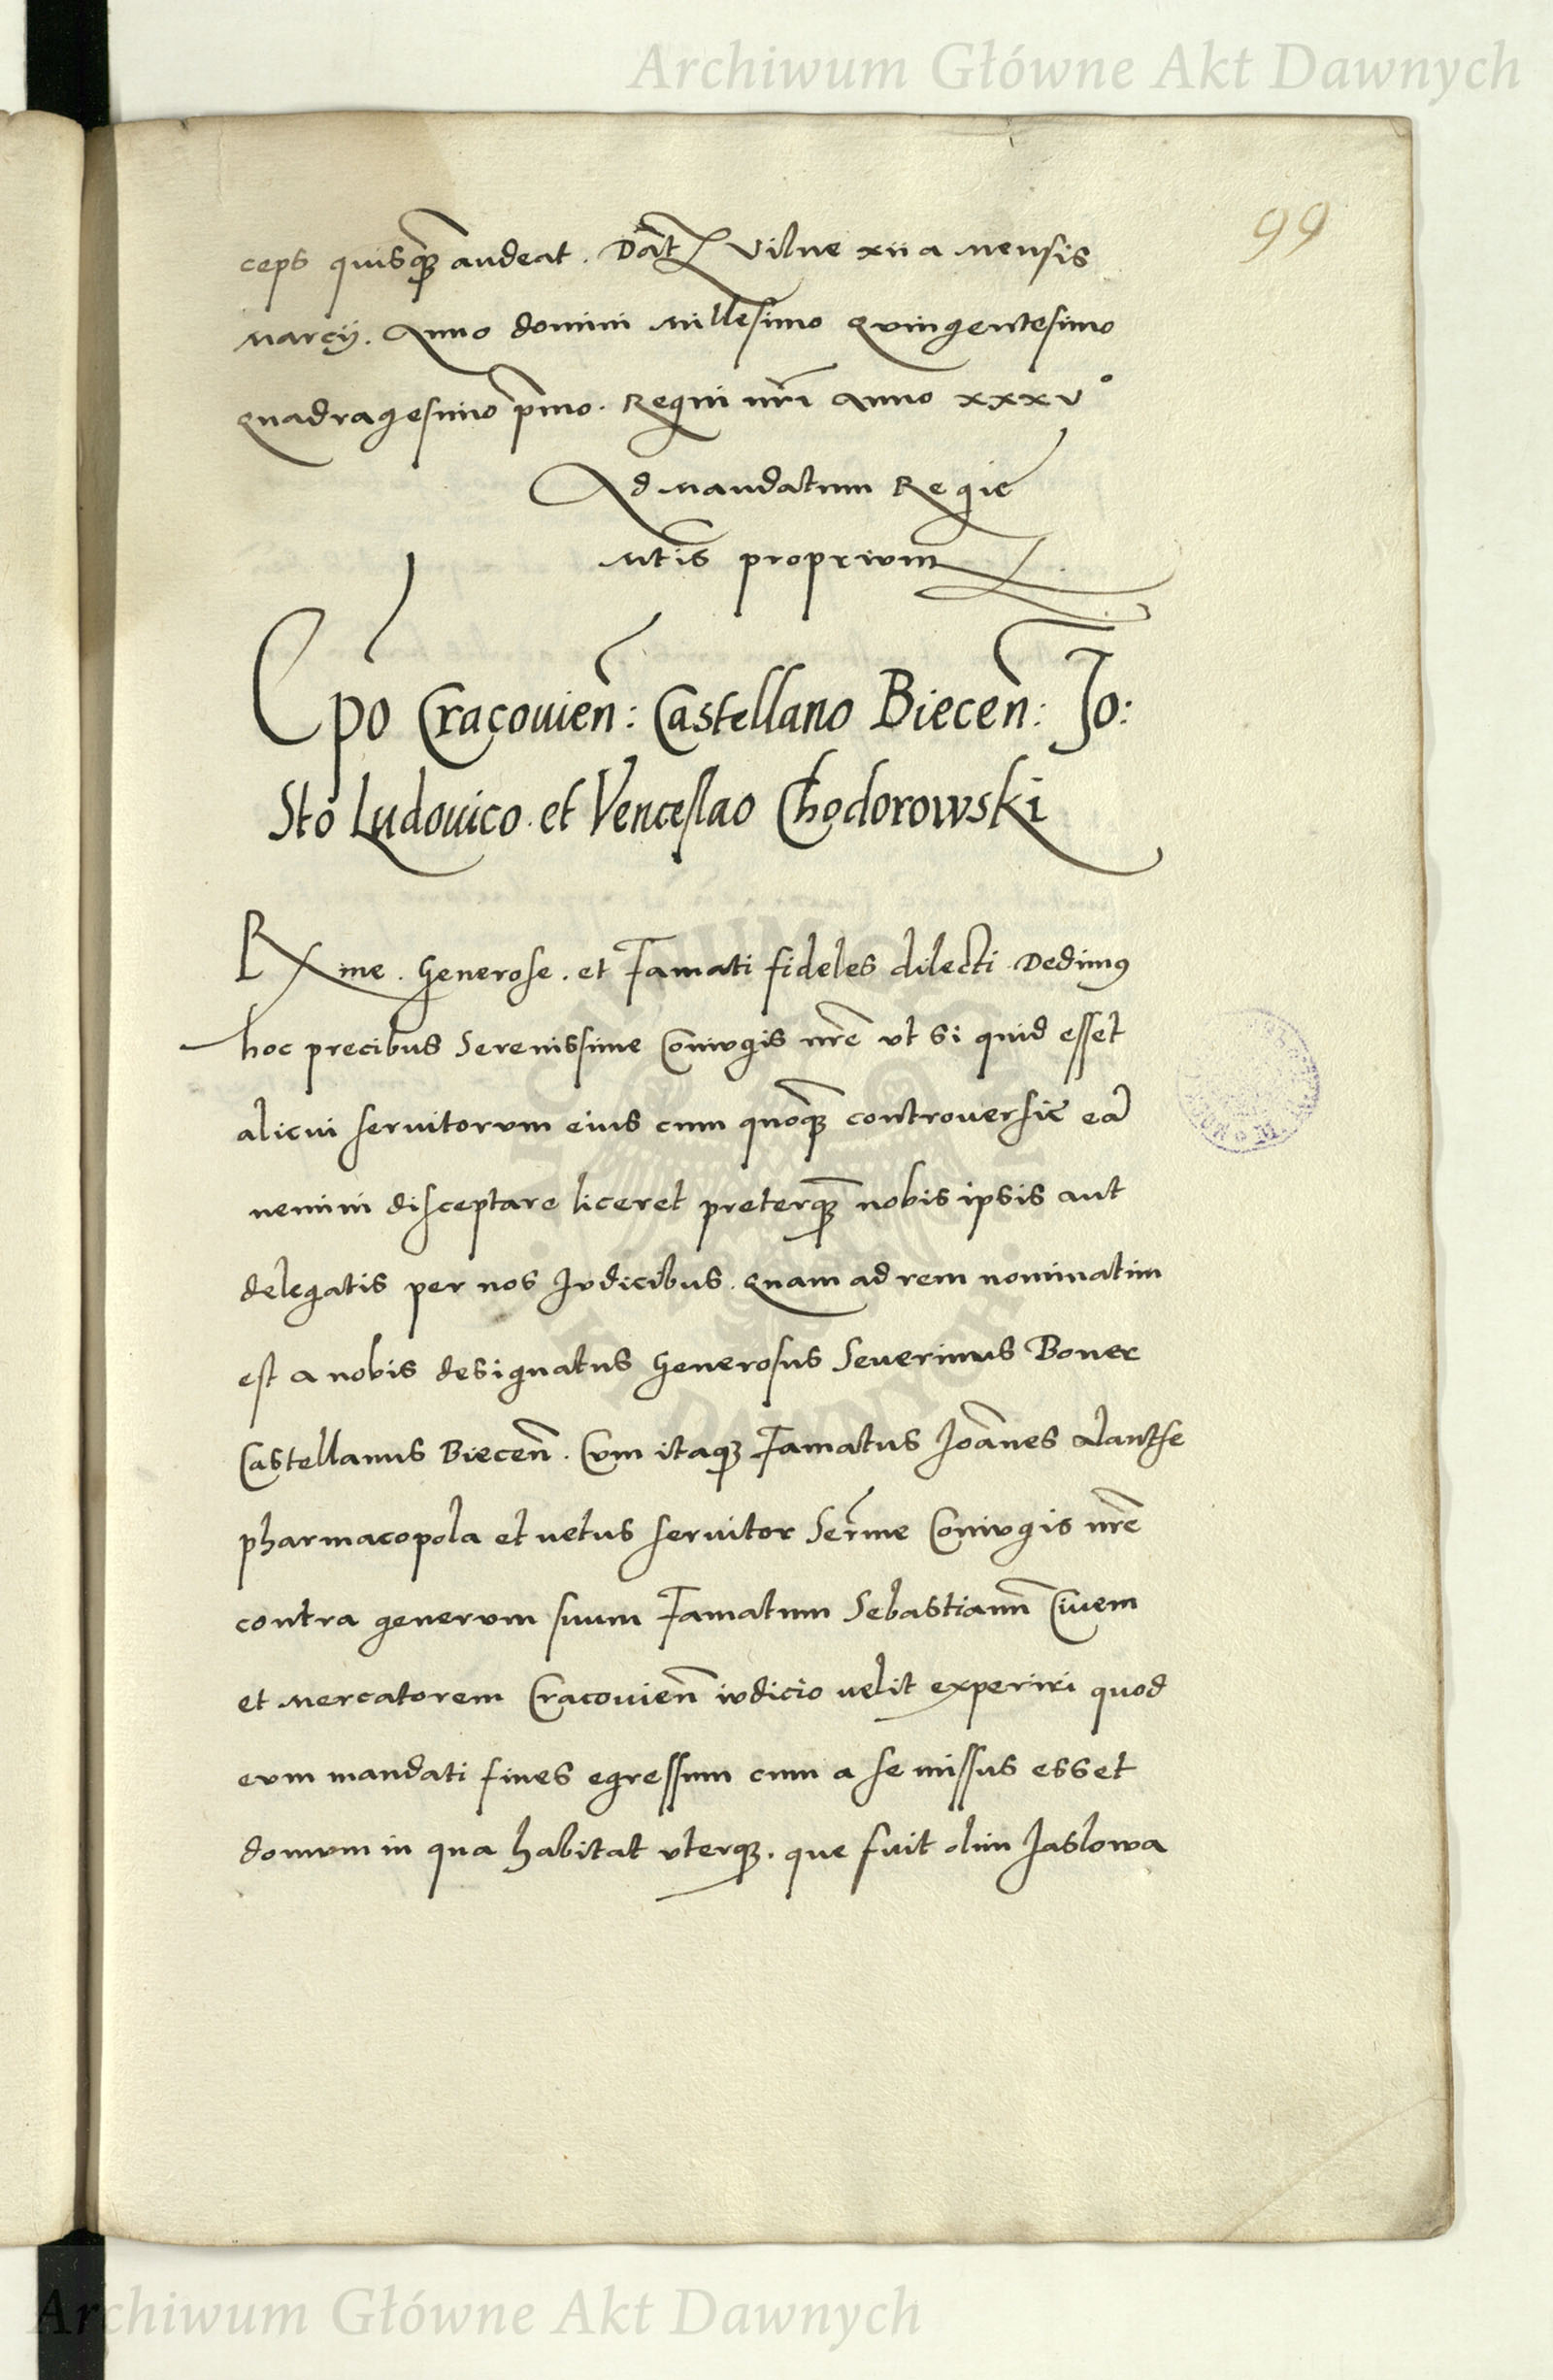 Archiwum Główne Akt Dawnych
99
ceps quisq̃ȝ audeat. Dat̃ Vilne xii a Mensis
Marcÿ. Anno domini Millesimo Quingentesimo
Quadragesimo p̃mo. Regni nr̃i Anno xxxvº
Ad Mandatum Regie
Mt̃is proprium
Ep̃o Cracouien̄: Castellano Biecen̄: Jo:
Sto Ludouico. et Venceslao Chodorowski
Rx̃me. Generose. et Famati fideles dilecti Dedimꝰ
hoc precibus Serenissime Coniugis nr̃e vt si quid esset
alicui seruitorum eius cum quoq̃ȝ controuersie ea͂
nemini disceptare liceret preterq̃ȝ nobis ipsis aut
delegatis per nos Judicibus. Quam ad rem nominatim
est a nobis designatus Generosus Seuerinus Boner
Castellanus Biecen̄. Cum itaqȝ Famatus Joãnes Alantse
pharmacopola et uetus seruitor Ser̃me Coniugis nr̃e
contra generum suum Famatum Sebastianũ Ciuem
et Mercatorem Cracouien̄ iudicio uelit experiri quod
eum mandati fines egressum cum a se missus esset
domum in qua habitat vterqȝ. que fuit olim Jaslowa
Archiwum Główne Akt Dawnych